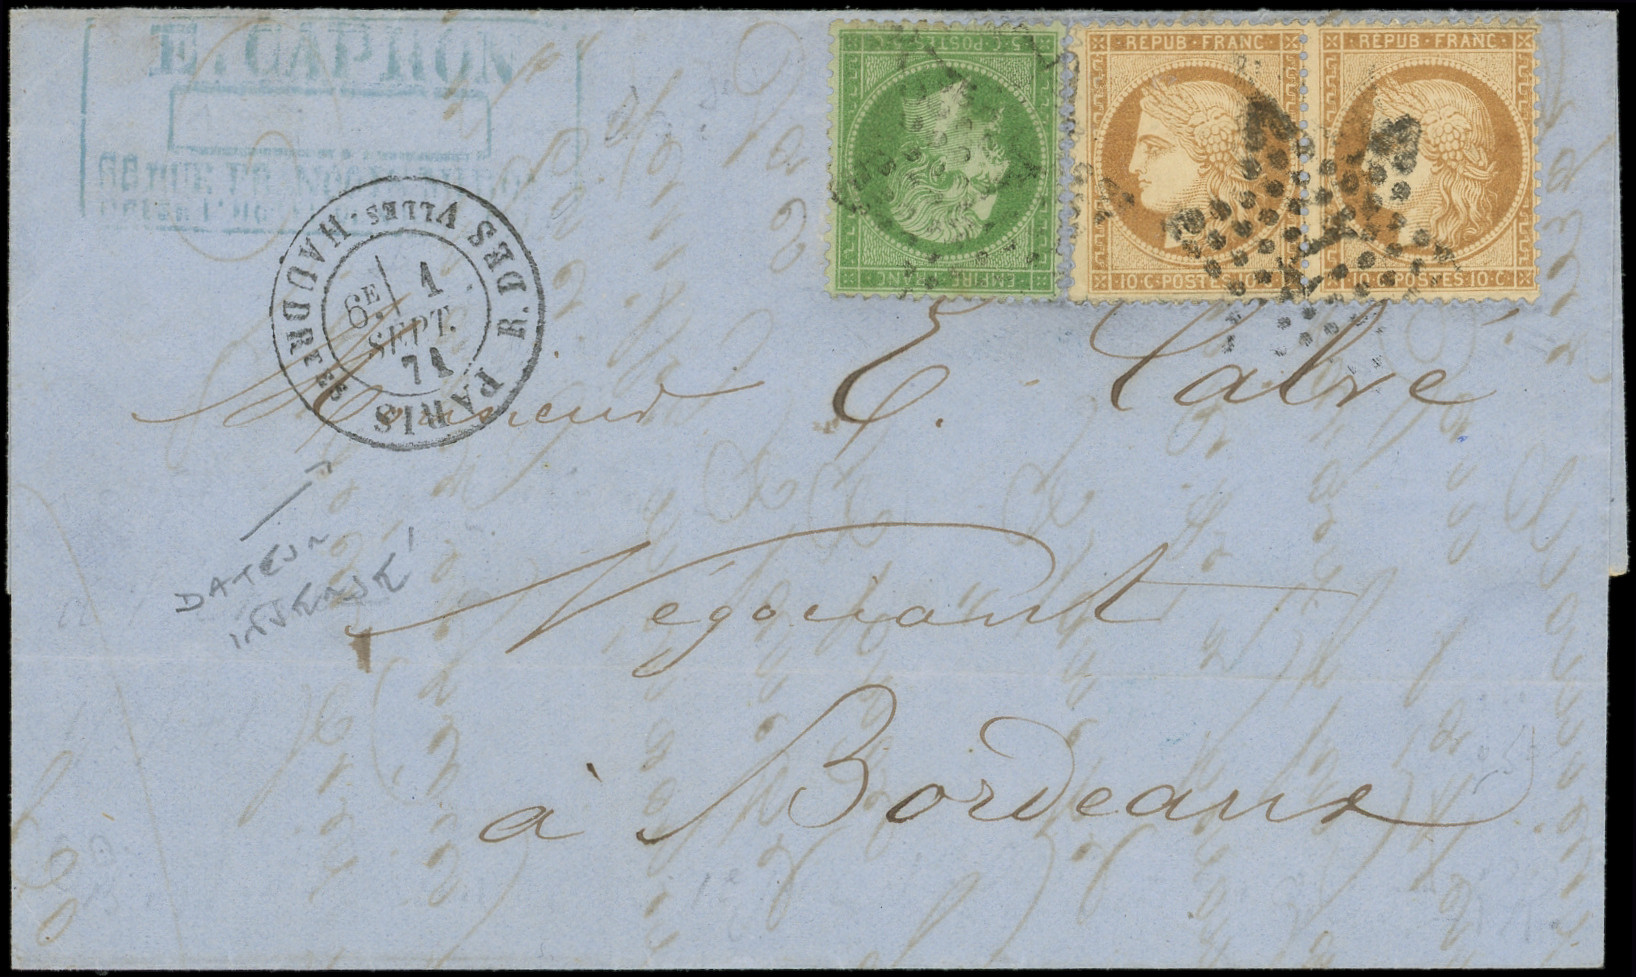 E. CAPRON
5 C. POSTES 5 C.
EMPIRE FRANC
REPUB · FRANC
10 · C · POSTES · 10
REPUB · FRANC
POSTES 10 · C
PARIS R. DES VLLES-HAUDRTTES
6E 1
SEPT.
71
Monsieur E. Calvé
Négociant
à Bordeaux
DATEUR
INVERSÉ !